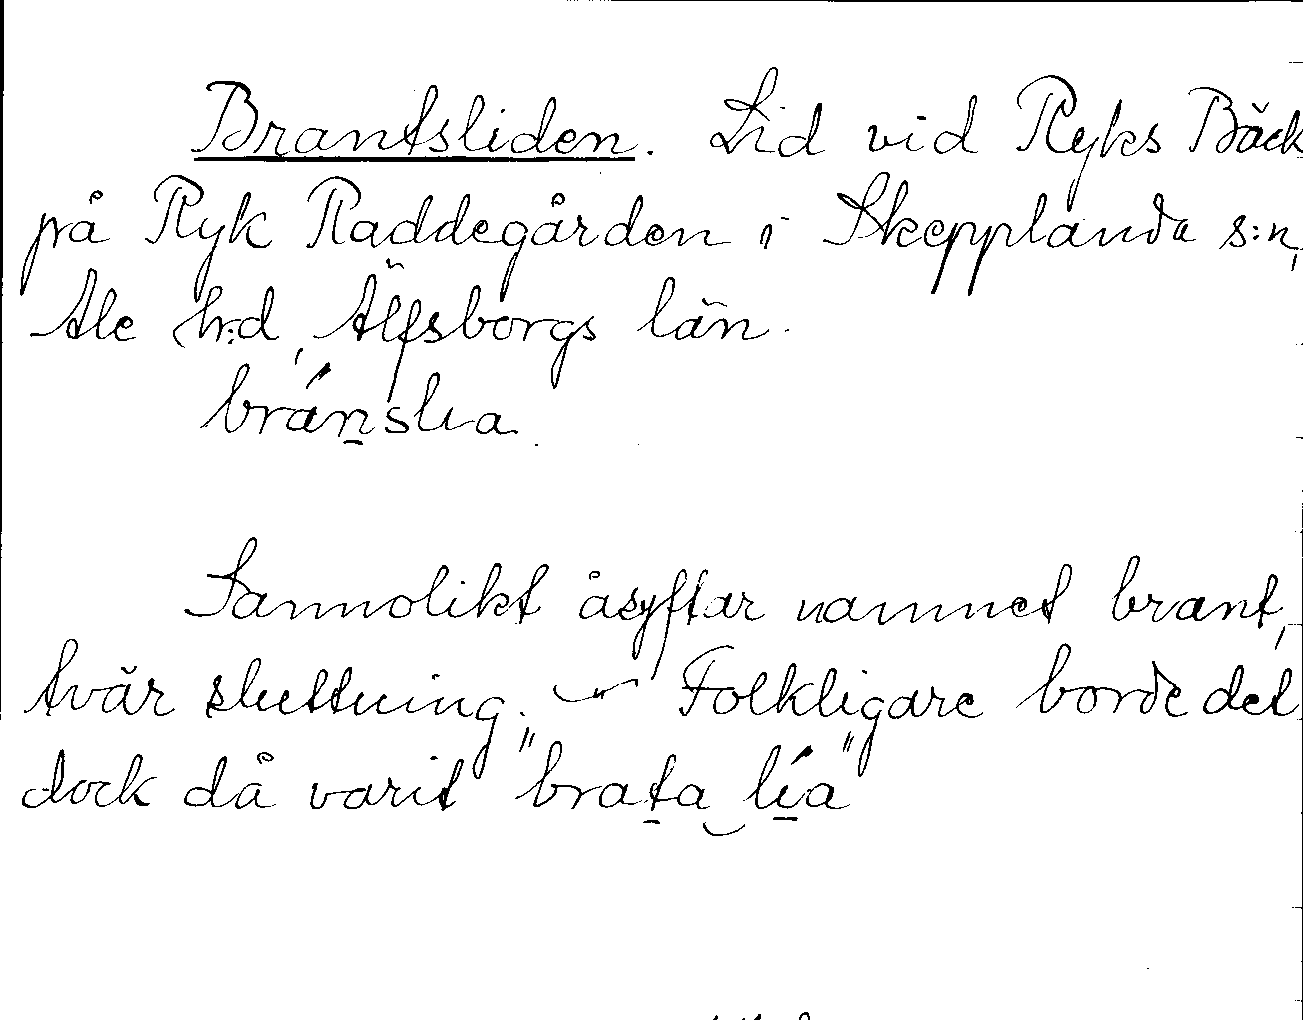 Brantsliden. Lid vid Ryks Bäck
på Ryk Raddegården i Skepplanda s:n,
Ale h:d, Älfsborgs län.
bránslia
Sannolikt åsyftar namnet brant,
tvär sluttning. – Folkligare borde det
dock då varit "brata lía"